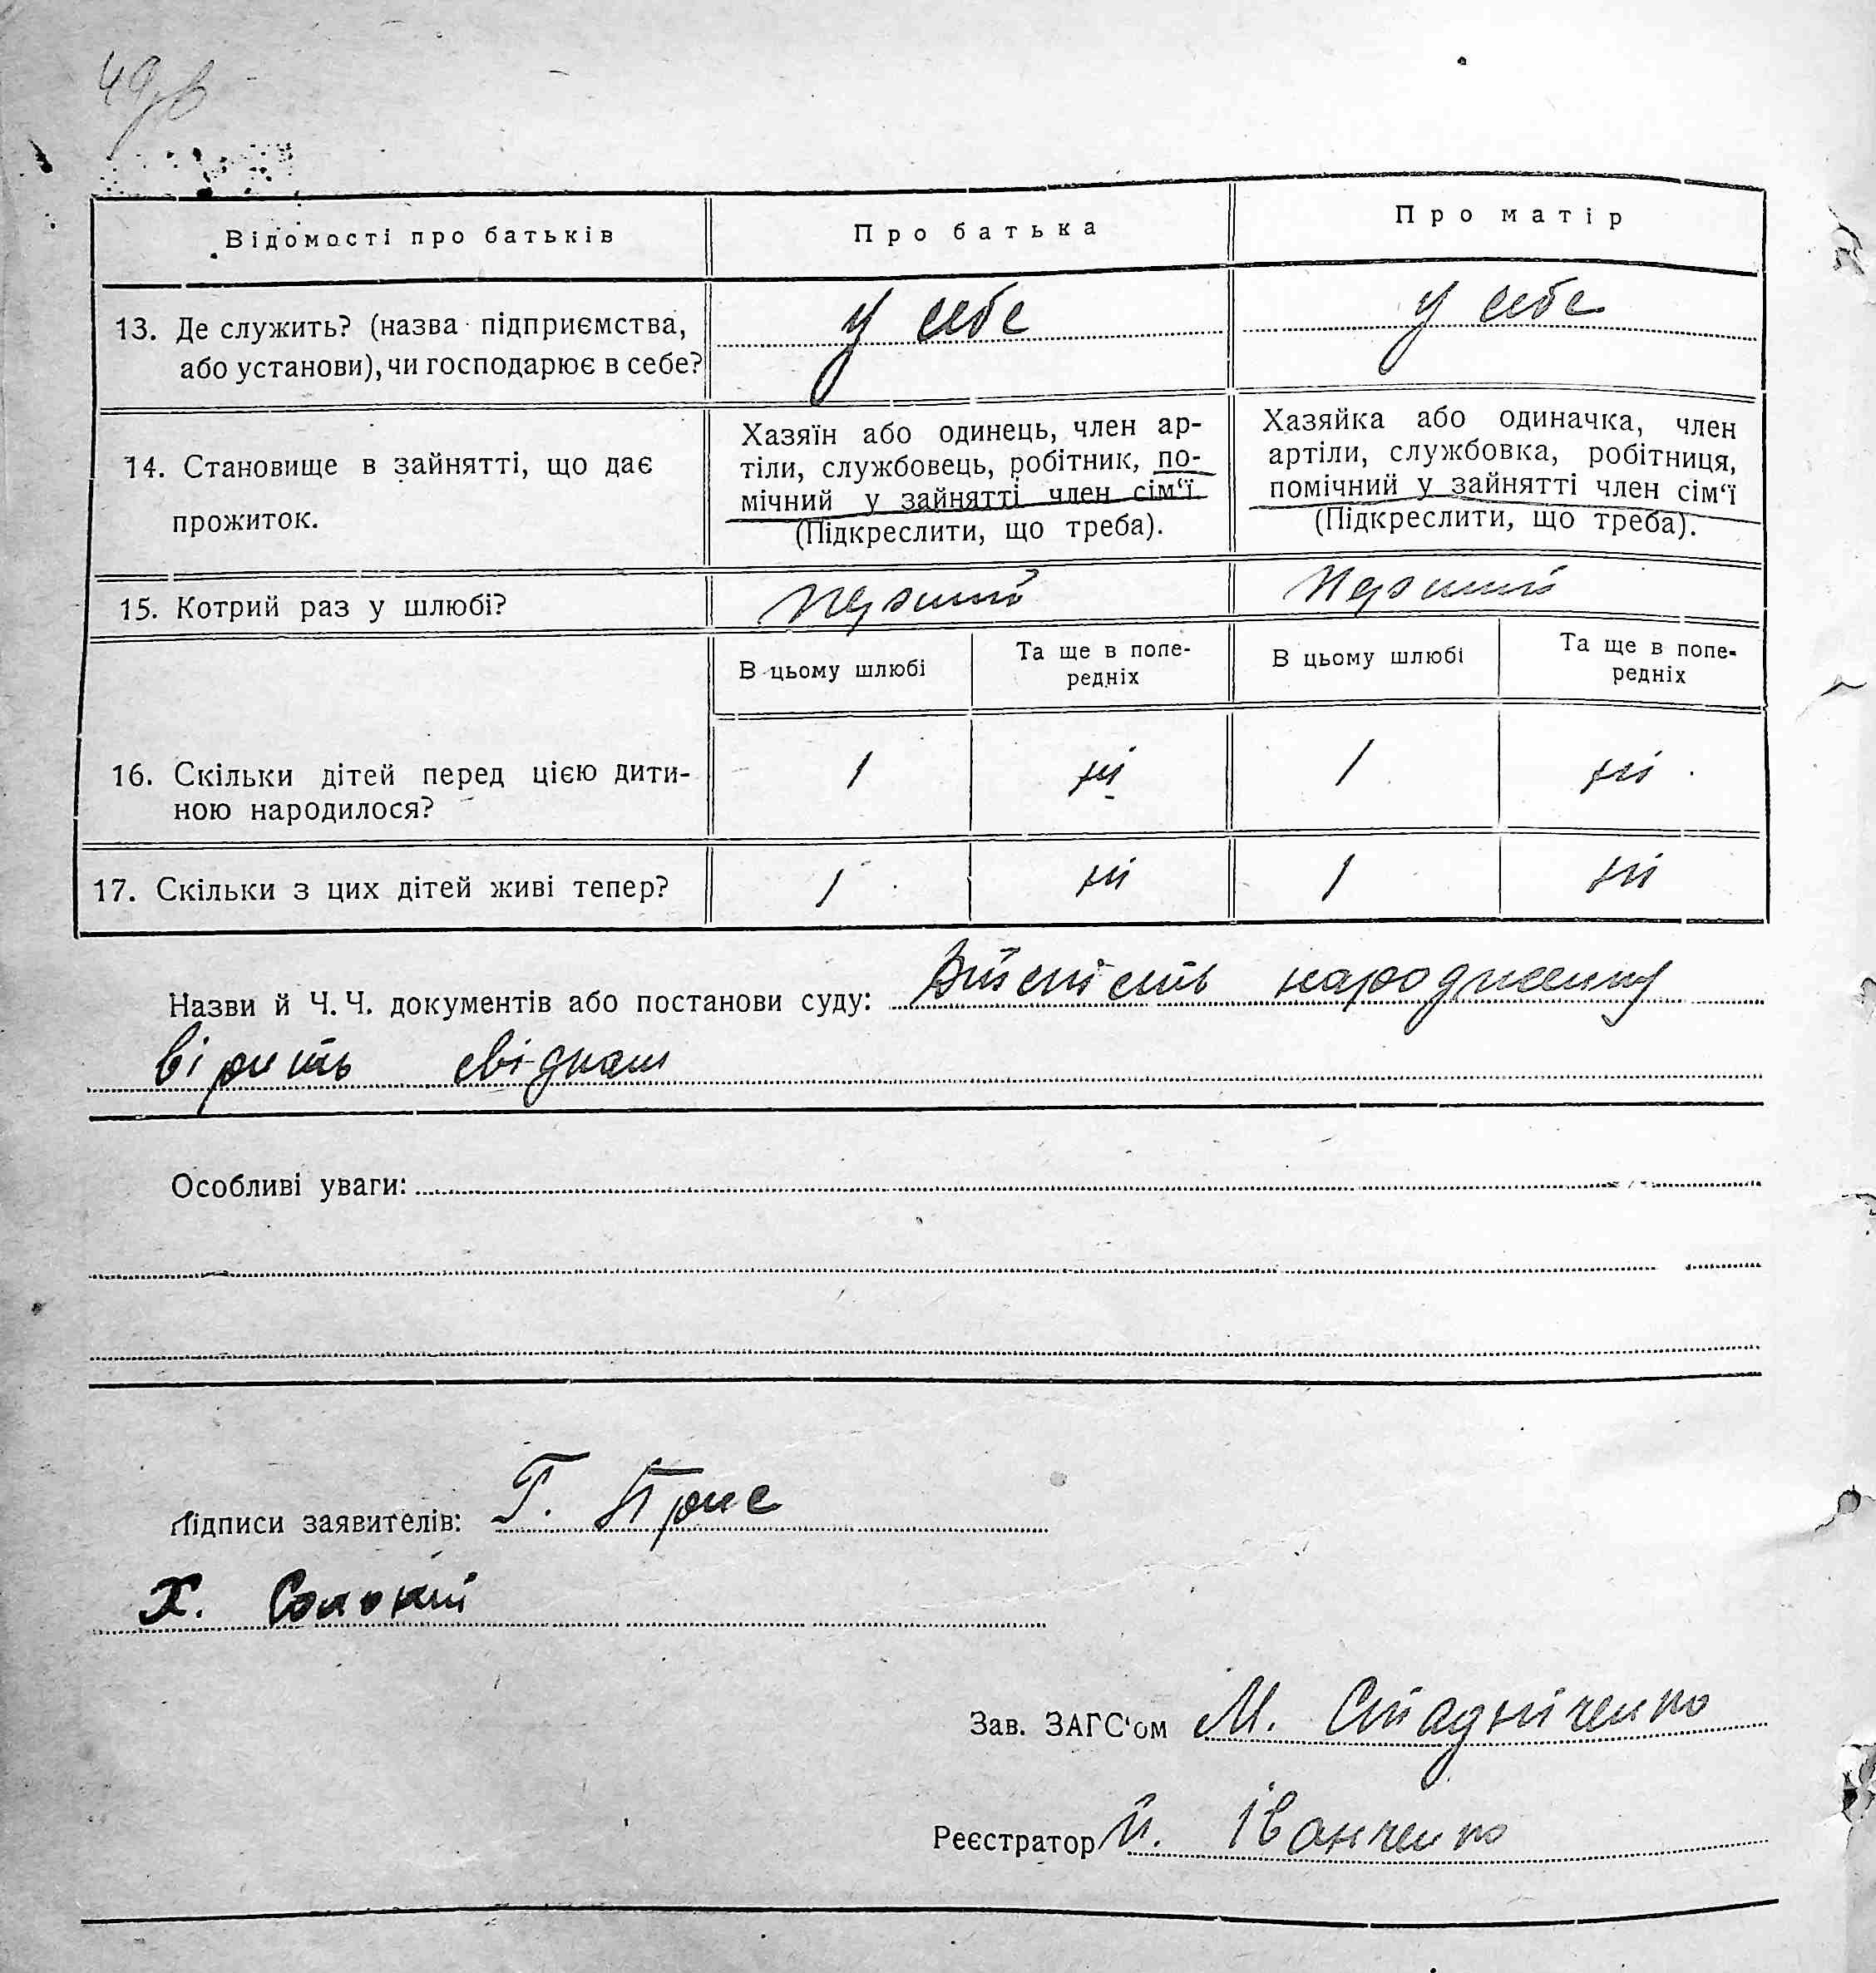 Відомості про батьків
Про батька
Про матір
13. Де служить? (назва підприємства,
або установи), чи господарює в себе?
у себе
у себе
14. Становище в зайнятті, що дає
прожиток.
Хазяїн або одинець, член ар-
тіли, службовець, робітник, по-
мічний у зайнятті член сім‘ї
(Підкреслити, що треба).
Хазяйка або одиначка, член
артіли, службовка, робітниця,
помічний у зайнятті член сім‘ї
(Підкреслити, що треба).
15. Котрий раз у шлюбі?
перший
перший
В цьому шлюбі
Та ще в попе-
редніх
В цьому шлюбі
Та ще в попе-
редніх
16. Скільки дітей перед цією дити-
ною народилося?
1
ні
1
ні
17. Скільки з цих дітей живі тепер?
1
ні
1
ні
Назви й Ч. Ч. документів або постанови суду: народження
вірить свідкам
Особливі уваги:
Підписи заявителів: Г.
Х.
Зав. ЗАГС‘ом М. Стадніченко
Реєстратор Й. Іванченко